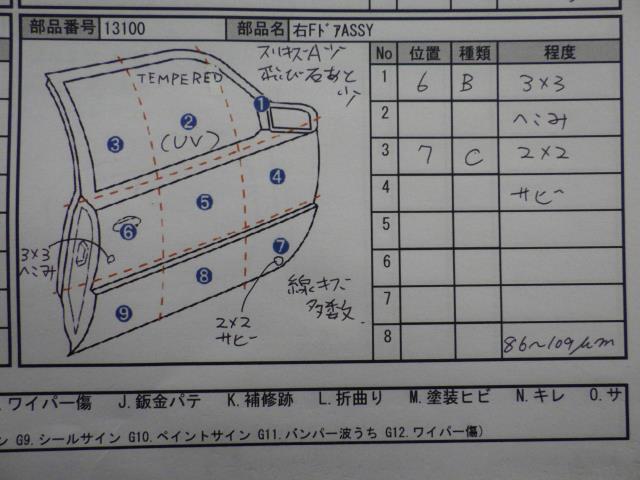 部品番号 13100 部品名 右FドアASSY
スリキズA少
飛び石あと
少
TEMPERED
(UV)
1
2
3
4
5
6
7
8
9
3×3
ヘこみ
2×2
サビー
線キズ
多数
No 位置 種類 程度
1 6 B 3×3
2 へこみ
3 7 C 2×2
4 サビー
5
6
7
8 86~109μm
ワイパー傷 J.鈑金パテ K.補修跡 L.折曲り M.塗装ヒビ N.キレ O.サ
ン G9.シールサイン G10.ペイントサイン G11.バンパー波うち G12.ワイパー傷)